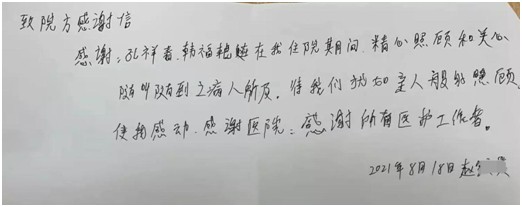 致院方感谢信
感谢:孔祥春、韩福艳 在我住院期间 精心照顾和关心
随叫随到 病人所及。待我们犹如亲人般的照顾
使我感动。感谢医院。感谢所有医护工作者。
2021年8月18日 赵